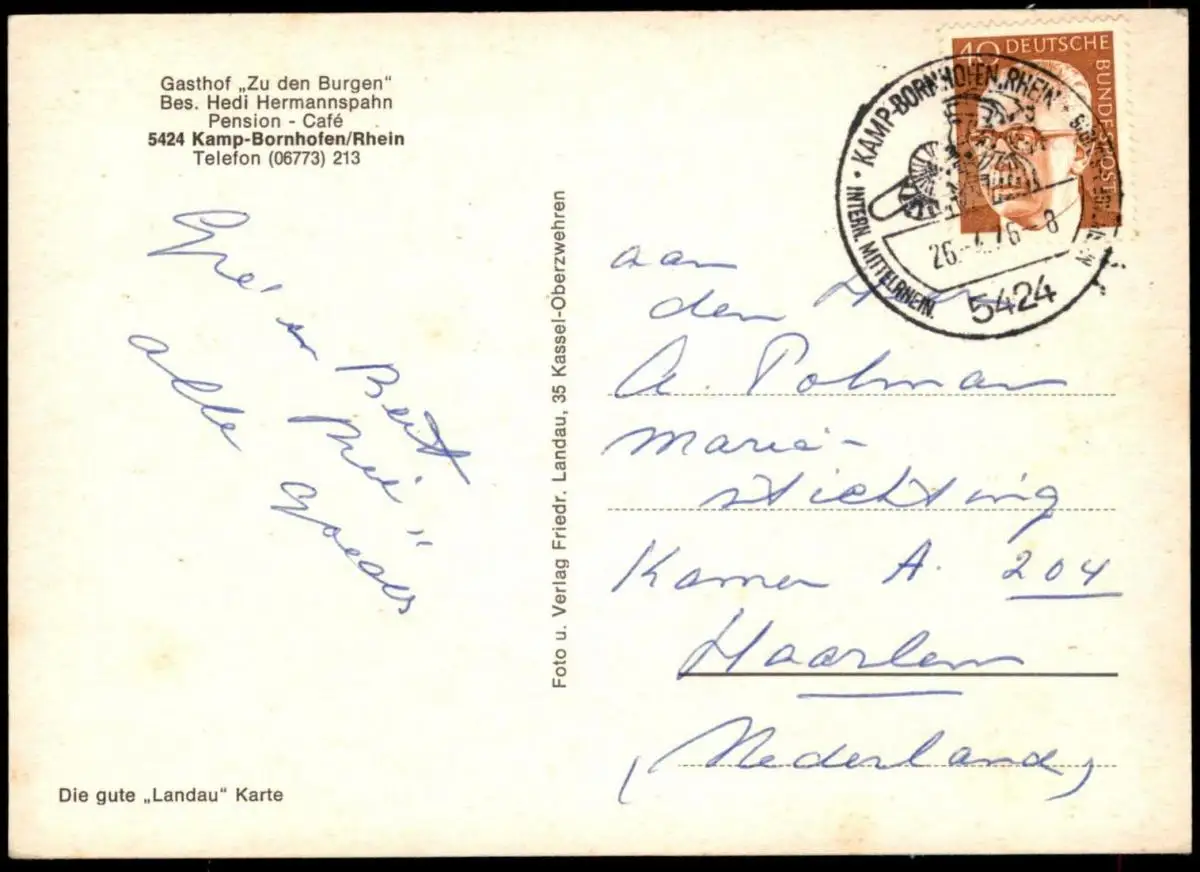 Gasthof „Zu den Burgen"
Bes. Hedi Hermannspahn
Pension - Café
5424 Kamp-Bornhofen/Rhein
Telefon (06773) 213
alle Goeds
Foto u. Verlag Friedr. Landau, 35 Kassel-Oberzwehren
Die gute „Landau" Karte
40 DEUTSCHE BUNDESPOST
KAMP-BORNHOFEN, RHEIN
INTERN. MITTELRHEIN.
5424
aan
den Heer
A. Polman
Maria-
stichting
Kamer A. 204
Haarlem
(Nederland)